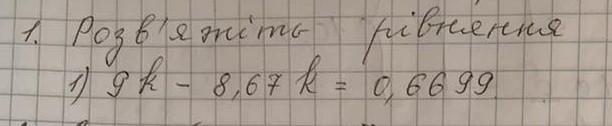 1. Розв'яжіть рівняння
1) 9k - 8,67k = 0,6699